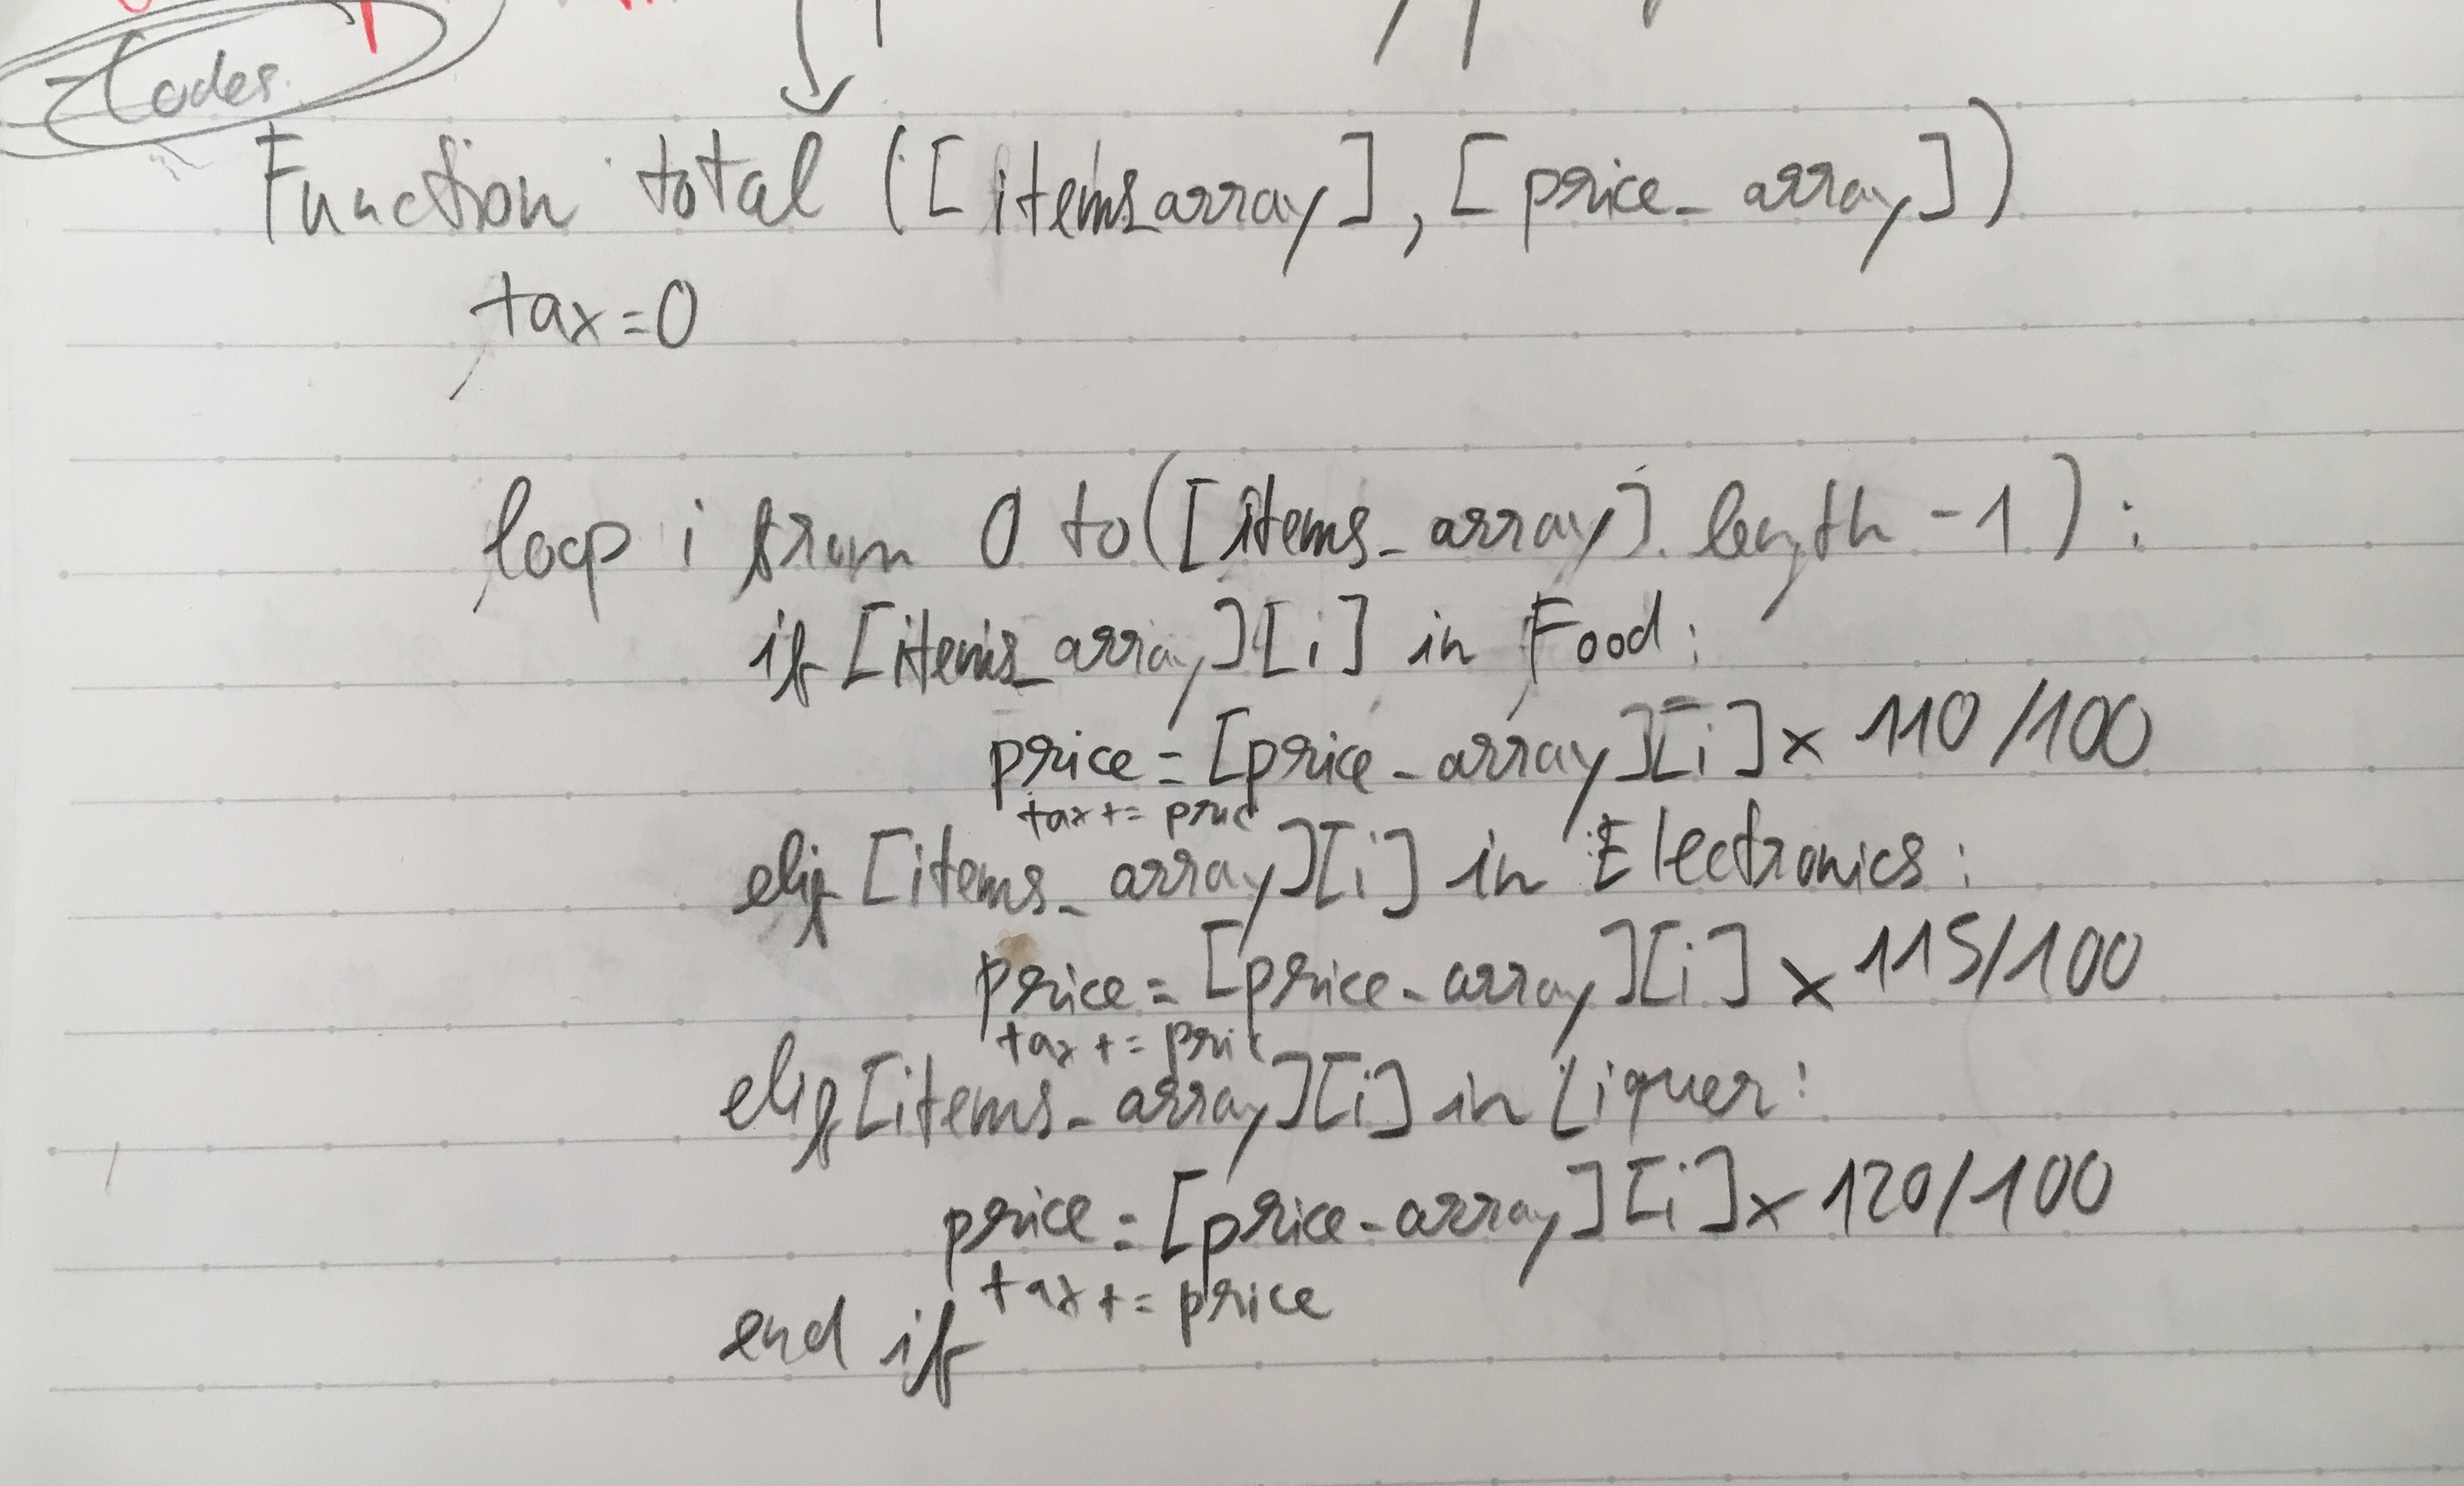 Codes.
Function total ([items_array], [price_array])
tax=0
loop i from 0 to([items_array].length-1):
if [items_array][i] in Food:
price=[price_array][i]x 110/100
tax+= pric
elif [items_array][i] in Electronics:
price=[price_array][i] x 115/100
tax += pric
elif [items_array][i] in Liquer:
price=[price_array][i]x 120/100
tax+=price
end if